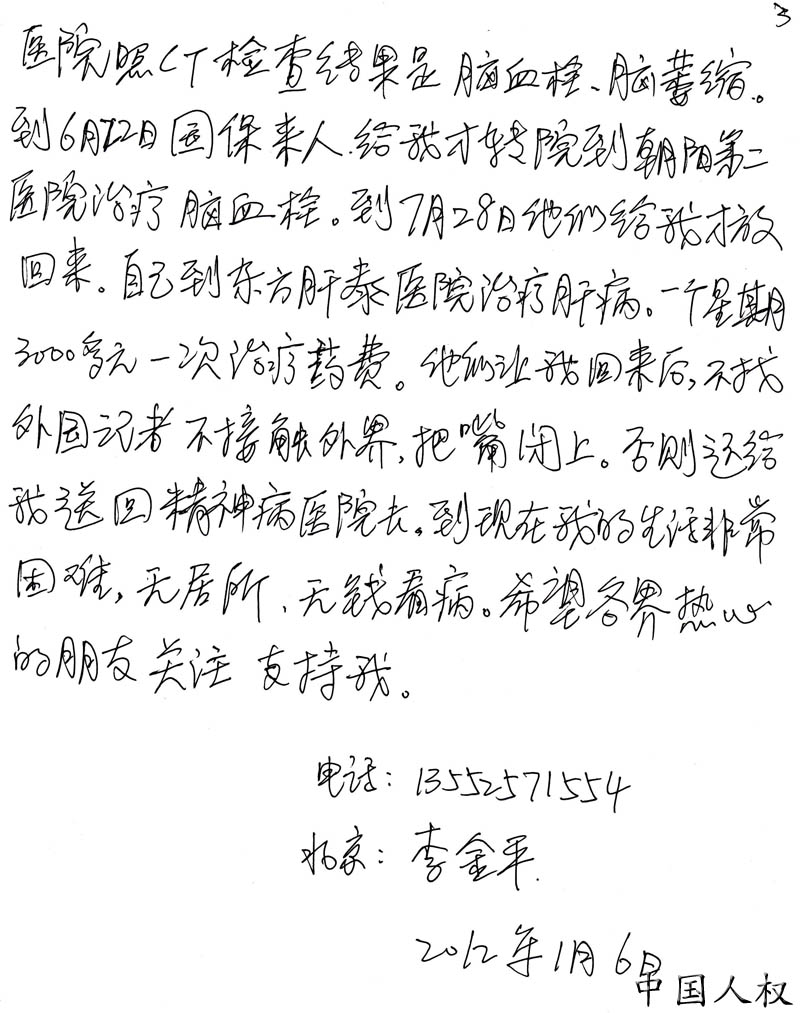 3
医院照CT检查结果是脑血栓、脑萎缩。
到6月22日国保来人.给我才转院到朝阳第二
医院治疗脑血栓。到7月28日他们给我才放
回来。自己到东方肝泰医院治疗肝病。一个星期
3000多元一次治疗药费。他们让我回来后,不找
外国记者不接触外界,把嘴闭上。否则还给
我送回精神病医院去。到现在我的生活非常
困难,无居所、无钱看病。希望各界热心
的朋友关注支持我。
电话:13552571554
北京:李金平.
2012年1月6日
中国人权